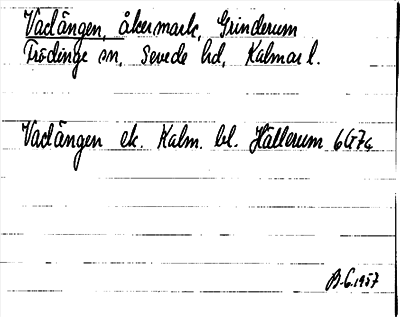 Vadängen, åkermark, Grinderum
Frödinge sn, Sevede hd, Kalmar l.
Vadängen ek. Kalm. bl. Hällerum 6G7a
B.G.1957